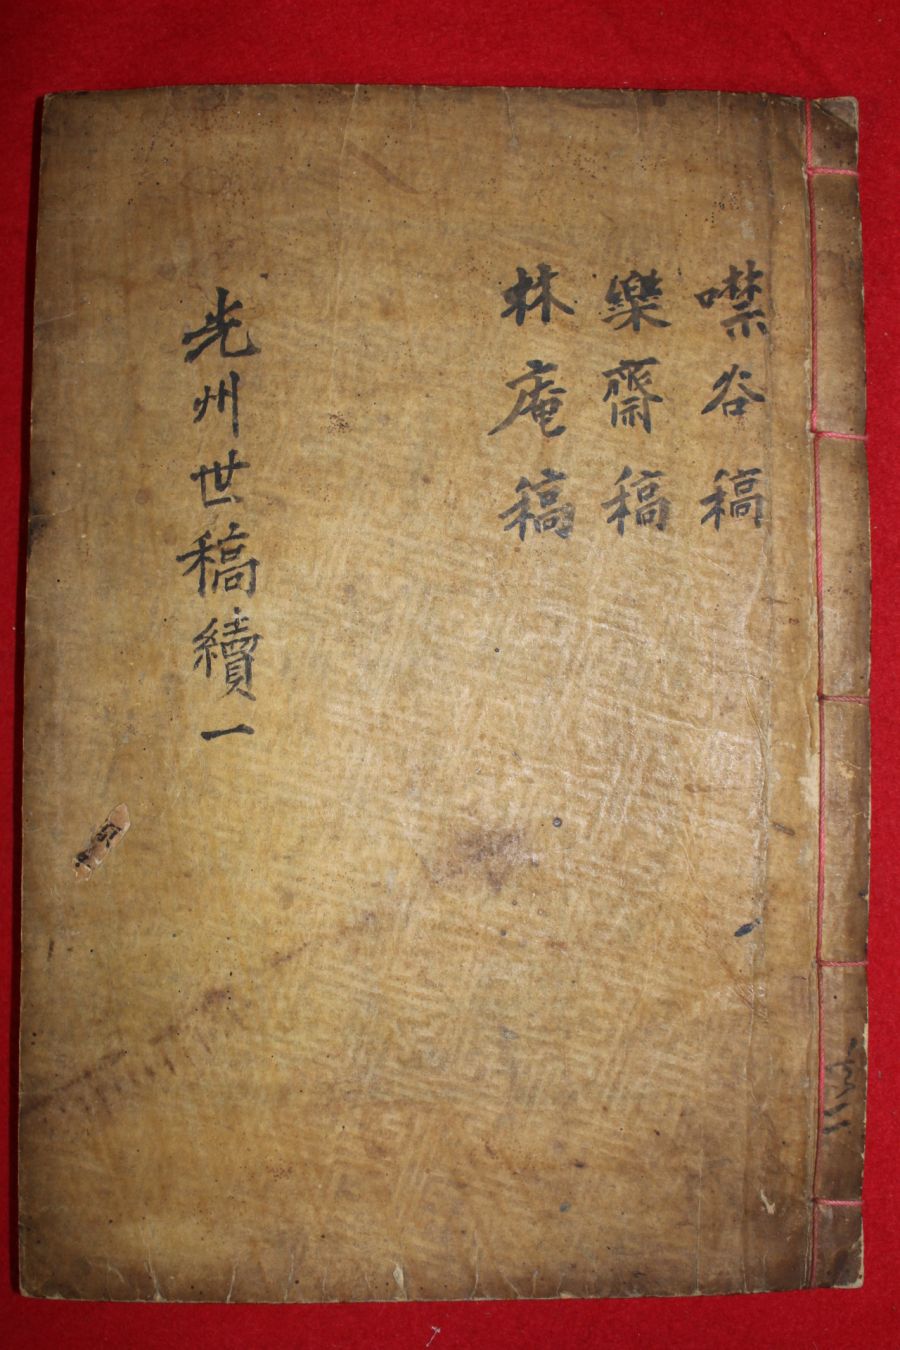 噤谷稿
樂齋稿
林庵稿
光州世稿續一